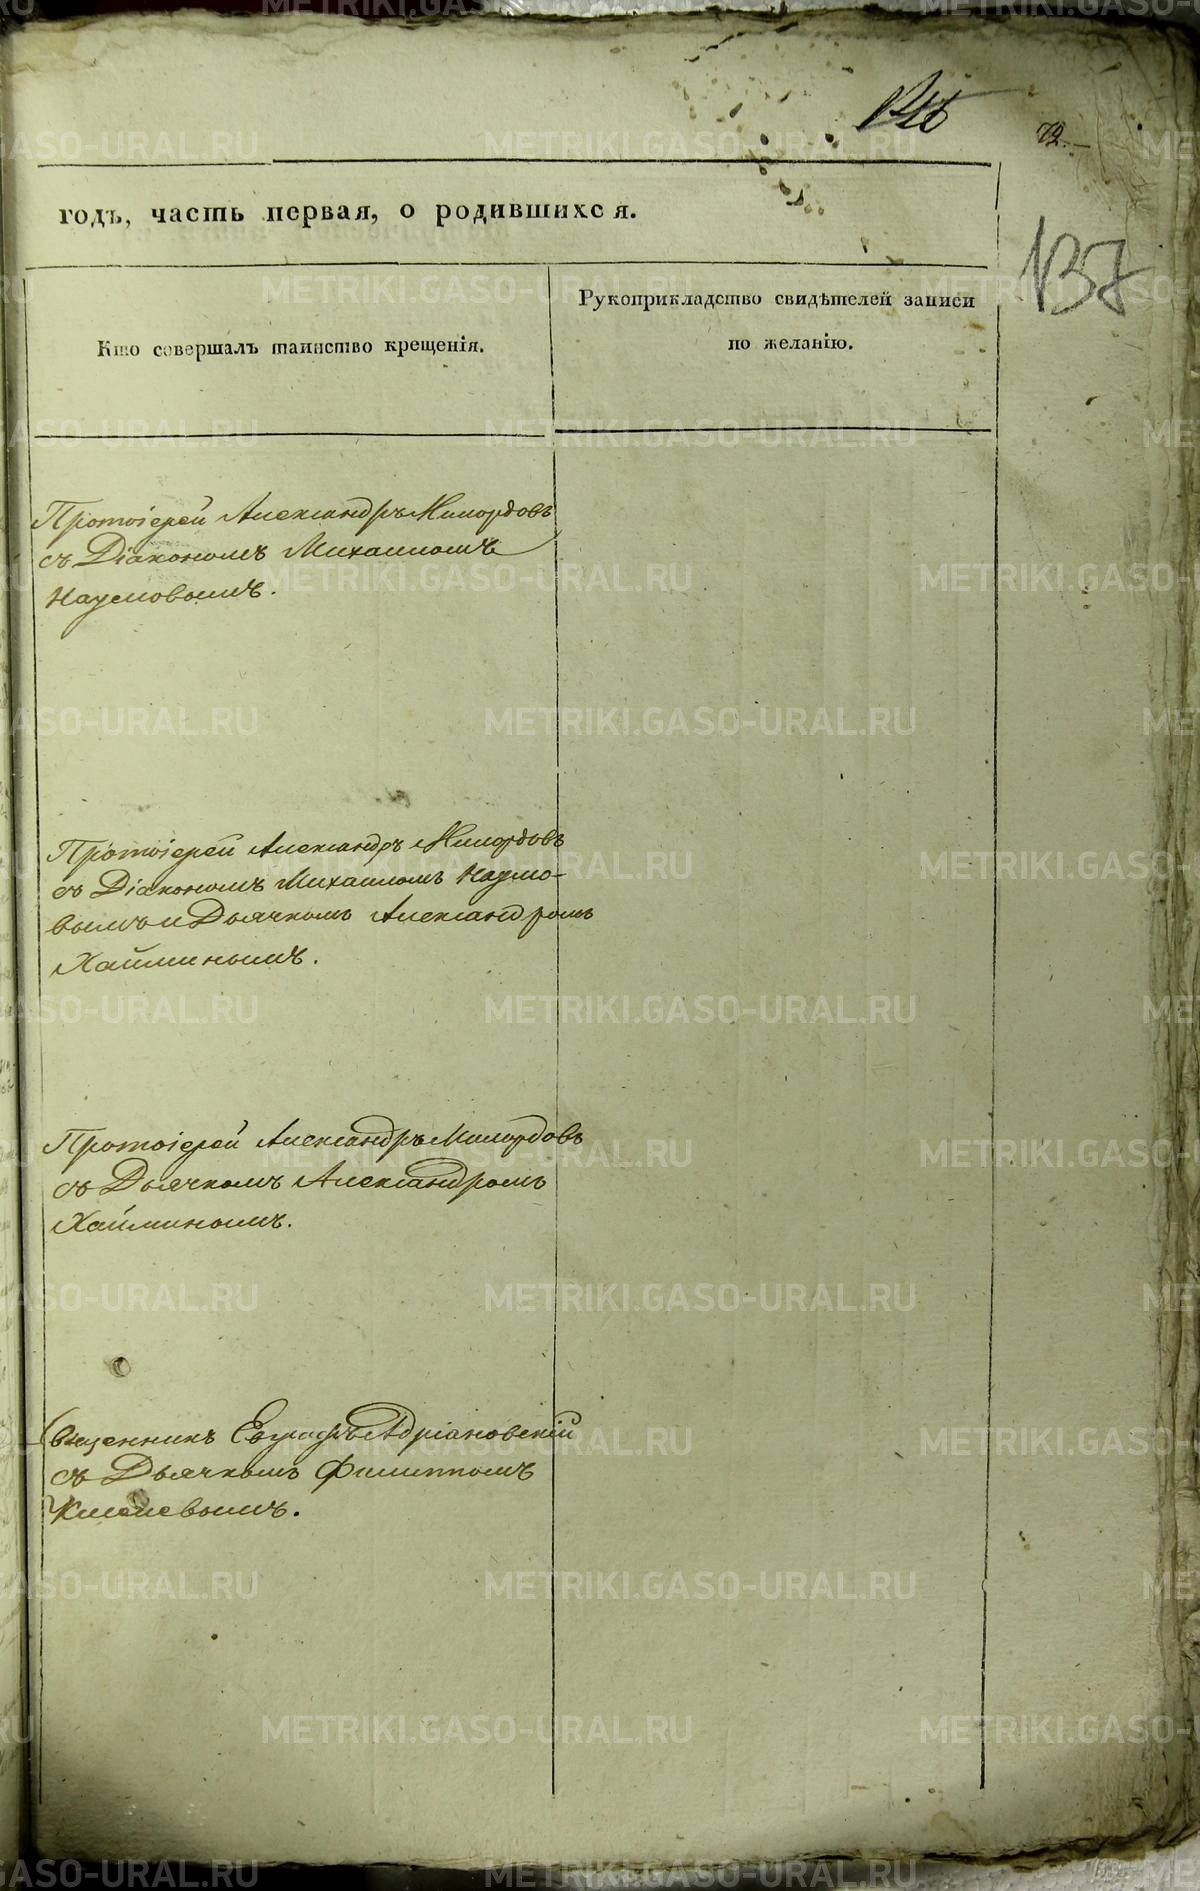 72.
137
годъ, часть первая, о родившихся.
Кто совершалъ таинство крещенія.
Рукоприкладство свидѣтелей записи
по желанію.
Протоіерей Александръ Милордовъ
съ Діакономъ Михаиломъ
Наумовымъ.
Протоіерей Александръ Милордовъ
съ Діакономъ Михаиломъ Наумо-
вымъ и Дьячкомъ Александромъ
Хайминымъ.
Протоіерей Александръ Милордовъ
съ Дьячкомъ Александромъ
Хайминымъ.
Священникъ Евграфъ Адріановскій
съ Дьячкомъ Филиппомъ
METRIKI.GASO-URAL.RU